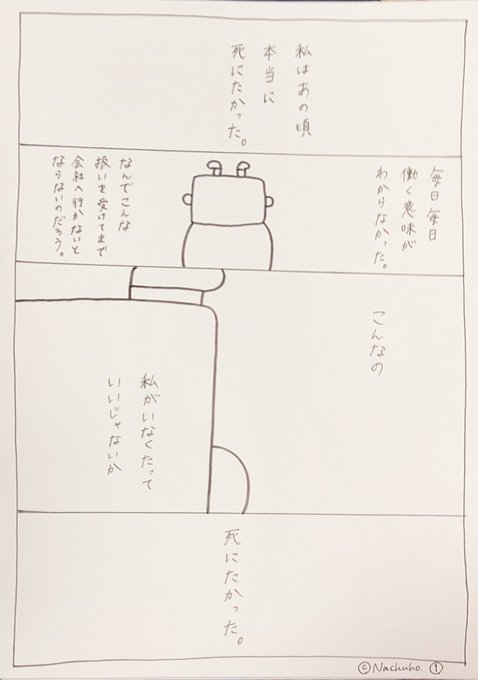 私はあの頃
本当に
死にたかった。
毎日毎日
働く意味が
わからなかった。
なんでこんな
扱いを受けてまで
会社へ行かないと
ならないのだろう。
こんなの
私がいなくたって
いいじゃないか
死にたかった。
©Nachuho. ①